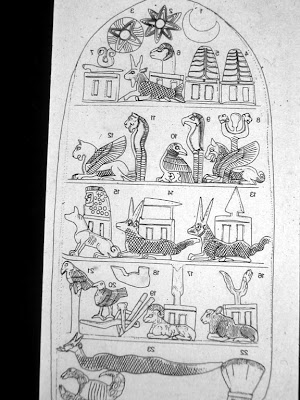 1 2 3
4 5 6 7
8 9 10 11 12
13 14 15
16 17 18 19 20 21
22 23